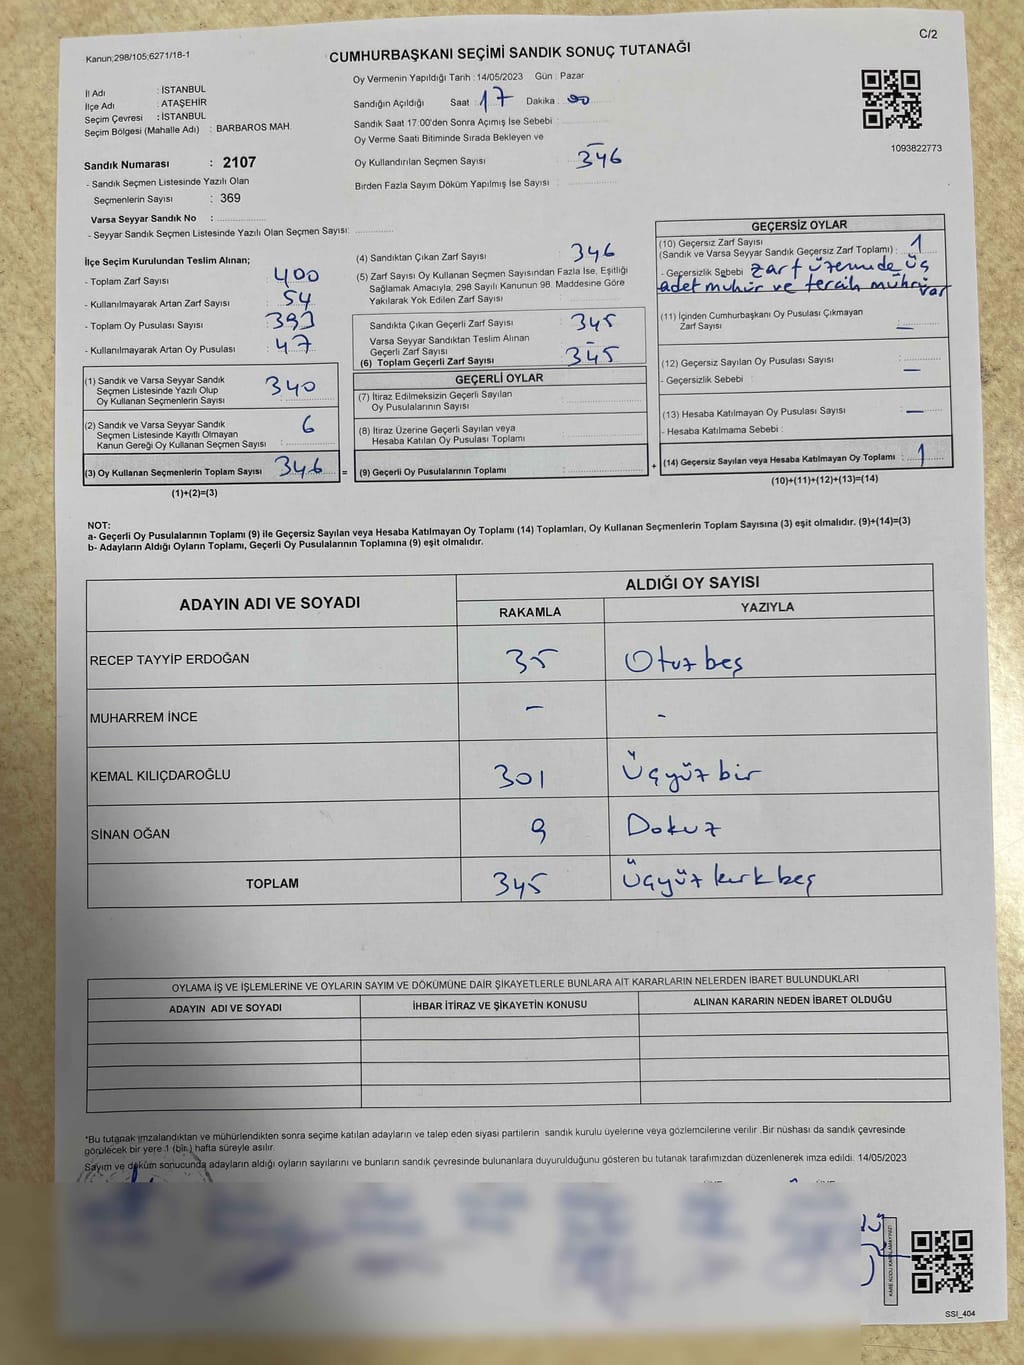 C/2
Kanun;298/105;6271/18-1
CUMHURBAŞKANI SEÇİMİ SANDIK SONUÇ TUTANAĞI
İl Adı : İSTANBUL
İlçe Adı : ATAŞEHİR
Seçim Çevresi : İSTANBUL
Seçim Bölgesi (Mahalle Adı) : BARBAROS MAH.
Sandık Numarası : 2107
- Sandık Seçmen Listesinde Yazılı Olan
Seçmenlerin Sayısı : 369
Varsa Seyyar Sandık No :
- Seyyar Sandık Seçmen Listesinde Yazılı Olan Seçmen Sayısı:
Oy Vermenin Yapıldığı Tarih : 14/05/2023 Gün : Pazar
Sandığın Açıldığı Saat : 17 Dakika : 00
Sandık Saat 17:00'den Sonra Açımış İse Sebebi :
Oy Verme Saati Bitiminde Sırada Bekleyen ve
Oy Kullandırılan Seçmen Sayısı : 346
Birden Fazla Sayım Döküm Yapılmış İse Sayısı :
1093822773
İlçe Seçim Kurulundan Teslim Alınan;
- Toplam Zarf Sayısı : 400
- Kullanılmayarak Artan Zarf Sayısı : 54
- Toplam Oy Pusulası Sayısı : 393
- Kullanılmayarak Artan Oy Pusulası : 47
(1) Sandık ve Varsa Seyyar Sandık
Seçmen Listesinde Yazılı Olup
Oy Kullanan Seçmenlerin Sayısı : 340
(2) Sandık ve Varsa Seyyar Sandık
Seçmen Listesinde Kayıtlı Olmayan
Kanun Gereği Oy Kullanan Seçmen Sayısı : 6
(3) Oy Kullanan Seçmenlerin Toplam Sayısı : 346 =
(1)+(2)=(3)
(4) Sandıktan Çıkan Zarf Sayısı : 346
(5) Zarf Sayısı Oy Kullanan Seçmen Sayısından Fazla İse, Eşitliği
Sağlamak Amacıyla, 298 Sayılı Kanunun 98. Maddesine Göre
Yakılarak Yok Edilen Zarf Sayısı :
Sandıkta Çıkan Geçerli Zarf Sayısı : 345
Varsa Seyyar Sandıktan Teslim Alınan
Geçerli Zarf Sayısı : –
(6) Toplam Geçerli Zarf Sayısı : 345
GEÇERLİ OYLAR
(7) İtiraz Edilmeksizin Geçerli Sayılan
Oy Pusulalarının Sayısı :
(8) İtiraz Üzerine Geçerli Sayılan veya
Hesaba Katılan Oy Pusulası Toplamı :
(9) Geçerli Oy Pusulalarının Toplamı : +
GEÇERSİZ OYLAR
(10) Geçersiz Zarf Sayısı
(Sandık ve Varsa Seyyar Sandık Geçersiz Zarf Toplamı) : 1
- Geçersizlik Sebebi : zarf üzerinde üç
adet mühür ve tercih mührü
var
(11) İçinden Cumhurbaşkanı Oy Pusulası Çıkmayan
Zarf Sayısı : –
(12) Geçersiz Sayılan Oy Pusulası Sayısı : –
- Geçersizlik Sebebi :
(13) Hesaba Katılmayan Oy Pusulası Sayısı : –
- Hesaba Katılmama Sebebi :
(14) Geçersiz Sayılan veya Hesaba Katılmayan Oy Toplamı : 1
(10)+(11)+(12)+(13)=(14)
NOT:
a- Geçerli Oy Pusulalarının Toplamı (9) ile Geçersiz Sayılan veya Hesaba Katılmayan Oy Toplamı (14) Toplamları, Oy Kullanan Seçmenlerin Toplam Sayısına (3) eşit olmalıdır. (9)+(14)=(3)
b- Adayların Aldığı Oyların Toplamı, Geçerli Oy Pusulalarının Toplamına (9) eşit olmalıdır.
ADAYIN ADI VE SOYADI
ALDIĞI OY SAYISI
RAKAMLA YAZIYLA
RECEP TAYYİP ERDOĞAN 35 Otuz beş
MUHARREM İNCE – -
KEMAL KILIÇDAROĞLU 301 Üçyüz bir
SİNAN OĞAN 9 Dokuz
TOPLAM 345 Üçyüz kırk beş
OYLAMA İŞ VE İŞLEMLERİNE VE OYLARIN SAYIM VE DÖKÜMÜNE DAİR ŞİKAYETLERLE BUNLARA AİT KARARLARIN NELERDEN İBARET BULUNDUKLARI
ADAYIN ADI VE SOYADI İHBAR İTİRAZ VE ŞİKAYETİN KONUSU ALINAN KARARIN NEDEN İBARET OLDUĞU
*Bu tutanak imzalandıktan ve mühürlendikten sonra seçime katılan adayların ve talep eden siyasi partilerin sandık kurulu üyelerine veya gözlemcilerine verilir .Bir nüshası da sandık çevresinde
görülecek bir yere 1 (bir ) hafta süreyle asılır.
Sayım ve döküm sonucunda adayların aldığı oyların sayılarını ve bunların sandık çevresinde bulunanlara duyurulduğunu gösteren bu tutanak tarafımızdan düzenlenerek imza edildi. 14/05/2023
KARE KODU KARALAMAYINIZ!
SSI_404